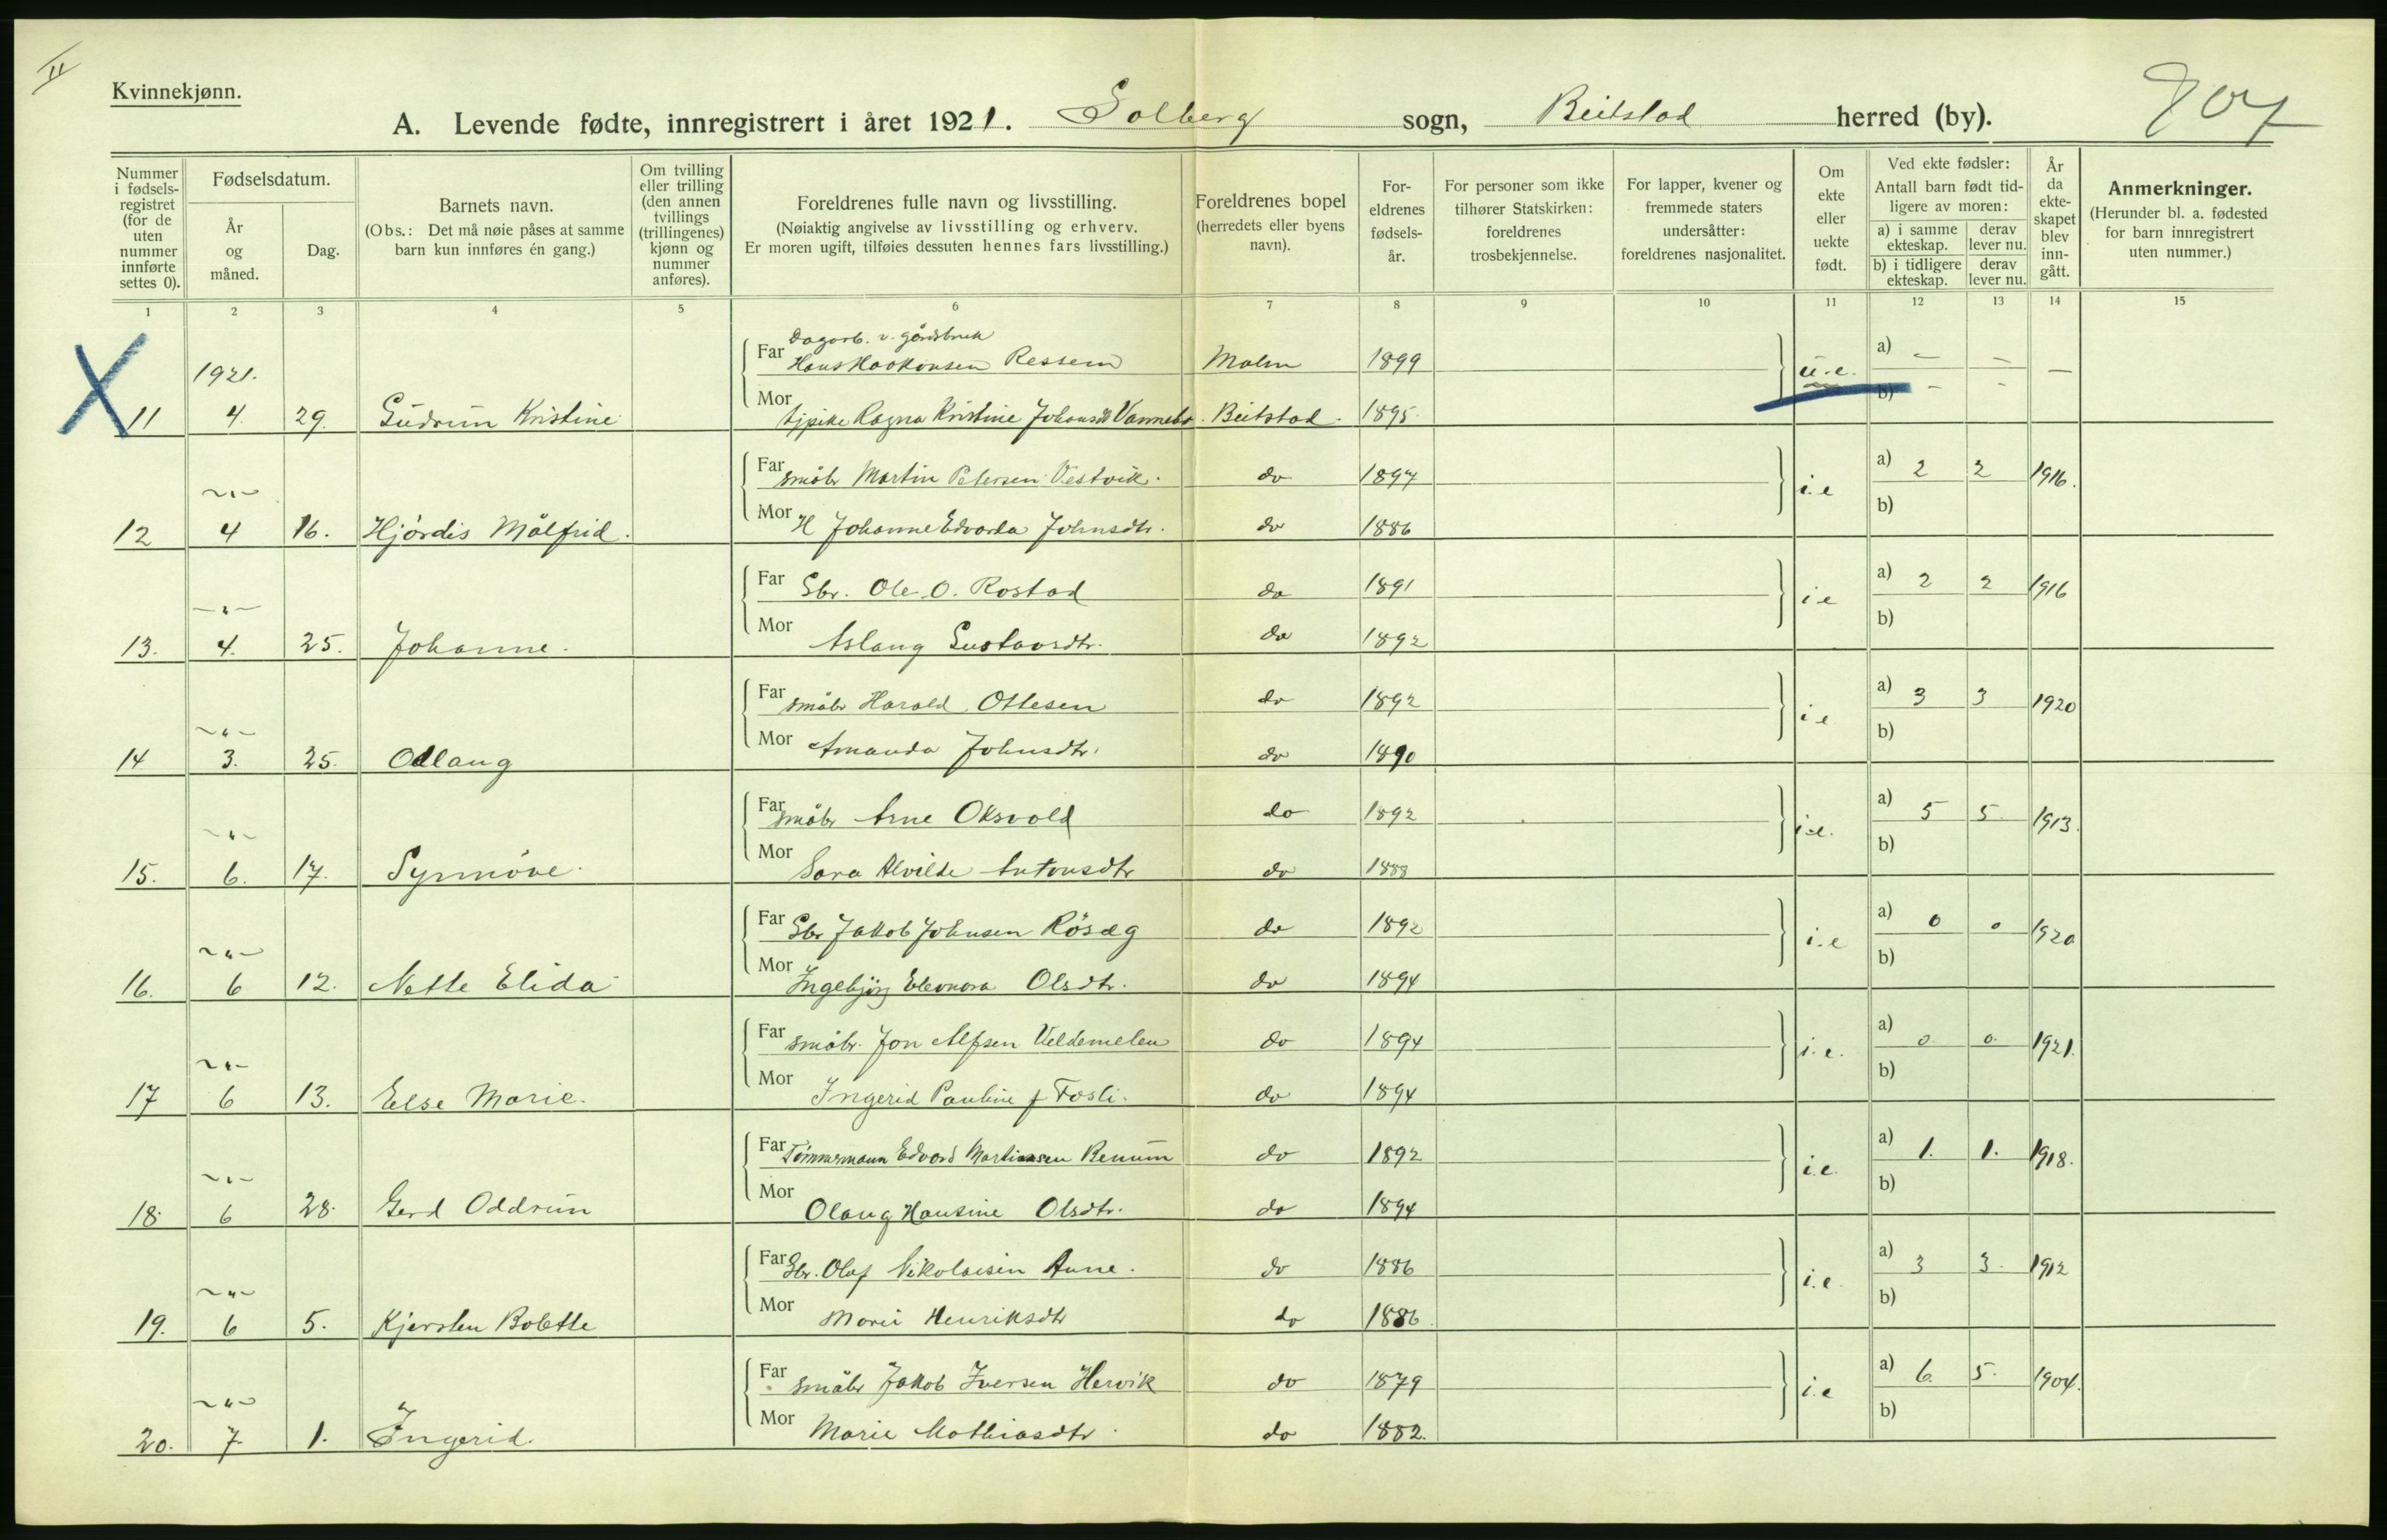 II
Kvinnekjønn.
A. Levende fødte, innregistrert i året 1921. Solberg sogn, Beitstad herred (by).
707
Nummer i fødsels-registret (for de uten nummer innførte settes 0).
Fødselsdatum.
År og måned.
Dag.
Barnets navn.
(Obs.: Det må nøie påses at samme barn kun innføres én gang.)
Om tvilling eller trilling (den annen tvillings (trillingenes) kjønn og nummer anføres).
Foreldrenes fulle navn og livsstilling.
(Nøiaktig angivelse av livsstilling og erhverv.
Er moren ugift, tilføies dessuten hennes fars livsstilling.)
Foreldrenes bopel (herredets eller byens navn).
For-eldrenes fødsels-år.
For personer som ikke tilhører Statskirken: foreldrenes trosbekjennelse.
For lapper, kvener og fremmede staters undersåtter: foreldrenes nasjonalitet.
Om ekte eller uekte født.
Ved ekte fødsler:
Antall barn født tid-ligere av moren:
a) i samme ekteskap.
derav lever nu.
b) i tidligere ekteskap.
derav lever nu.
År da ekte-skapet blev inn-gått.
Anmerkninger.
(Herunder bl. a. fødested for barn innregistrert uten nummer.)
1 2 3 4 5 6 7 8 9 10 11 12 13 14 15
Dagarb. v. gårdsbruk
1921. Far Hans Haakonsen Ressem Malm 1899 u.e. a) — — —
11 4. 29. Gudrun Kristine Mor tjpike Ragna Kristine Johansdt Vannebo. Beitstad. 1895. b) - -
-"- Far småbr Martin Petersen Vestvik. do 1897 i.e a) 2 2 1916.
12 4 16. Hjördis Målfrid. Mor H Johanne Edvarda Johnsdtr. do 1886 b)
-"- Far Gbr. Ole O. Rostad do 1891 i e a) 2 2 1916
13. 4. 25. Johanne. Mor Aslaug Gustavsdtr. do 1892 b)
-"- Far småbr Harald Ottesen do 1892 i e a) 3 3 1920
14 3. 25. Odlaug Mor Amanda Johnsdtr. do 1890 b)
-"- Far småbr Arne Oksvold do 1892 i.e. a) 5 5. 1913.
15. 6. 17. Synnöve. Mor Sara Alvilde Antonsdtr do 1888 b)
-"- Far Gbr Jakob Johnsen Rösæg do 1892 i.e a) 0 0 1920
16. 6 12. Nette Elida Mor Ingebjörg Eleonora Olsdtr. do 1894 b)
-"- Far småbr. Jon Alfsen Veldemelen do 1894 i.e. a) 0 0. 1921.
17 6 13. Else Marie. Mor Ingerid Pauline f Fosli. do 1894 b)
-"- Far Tömmermann Edvard Martinsen Benum do 1892 i.e. a) 1. 1. 1918.
18. 6 28. Gerd Oddrun Mor Olaug Hansine Olsdtr. do 1894 b)
-"- Far Gbr. Olaf Nikolaisen Aune. do 1886 i.e. a) 3 3. 1912
19. 6 5. Kjersten Bolette Mor Marie Henriksdtr do 1886. b)
-"- Far småbr Jakob Iversen Hervik do 1879 i.e a) 6. 5. 1904.
20. 7. 1. Ingerid. Mor Marie Mathiasdtr. do 1882. b)